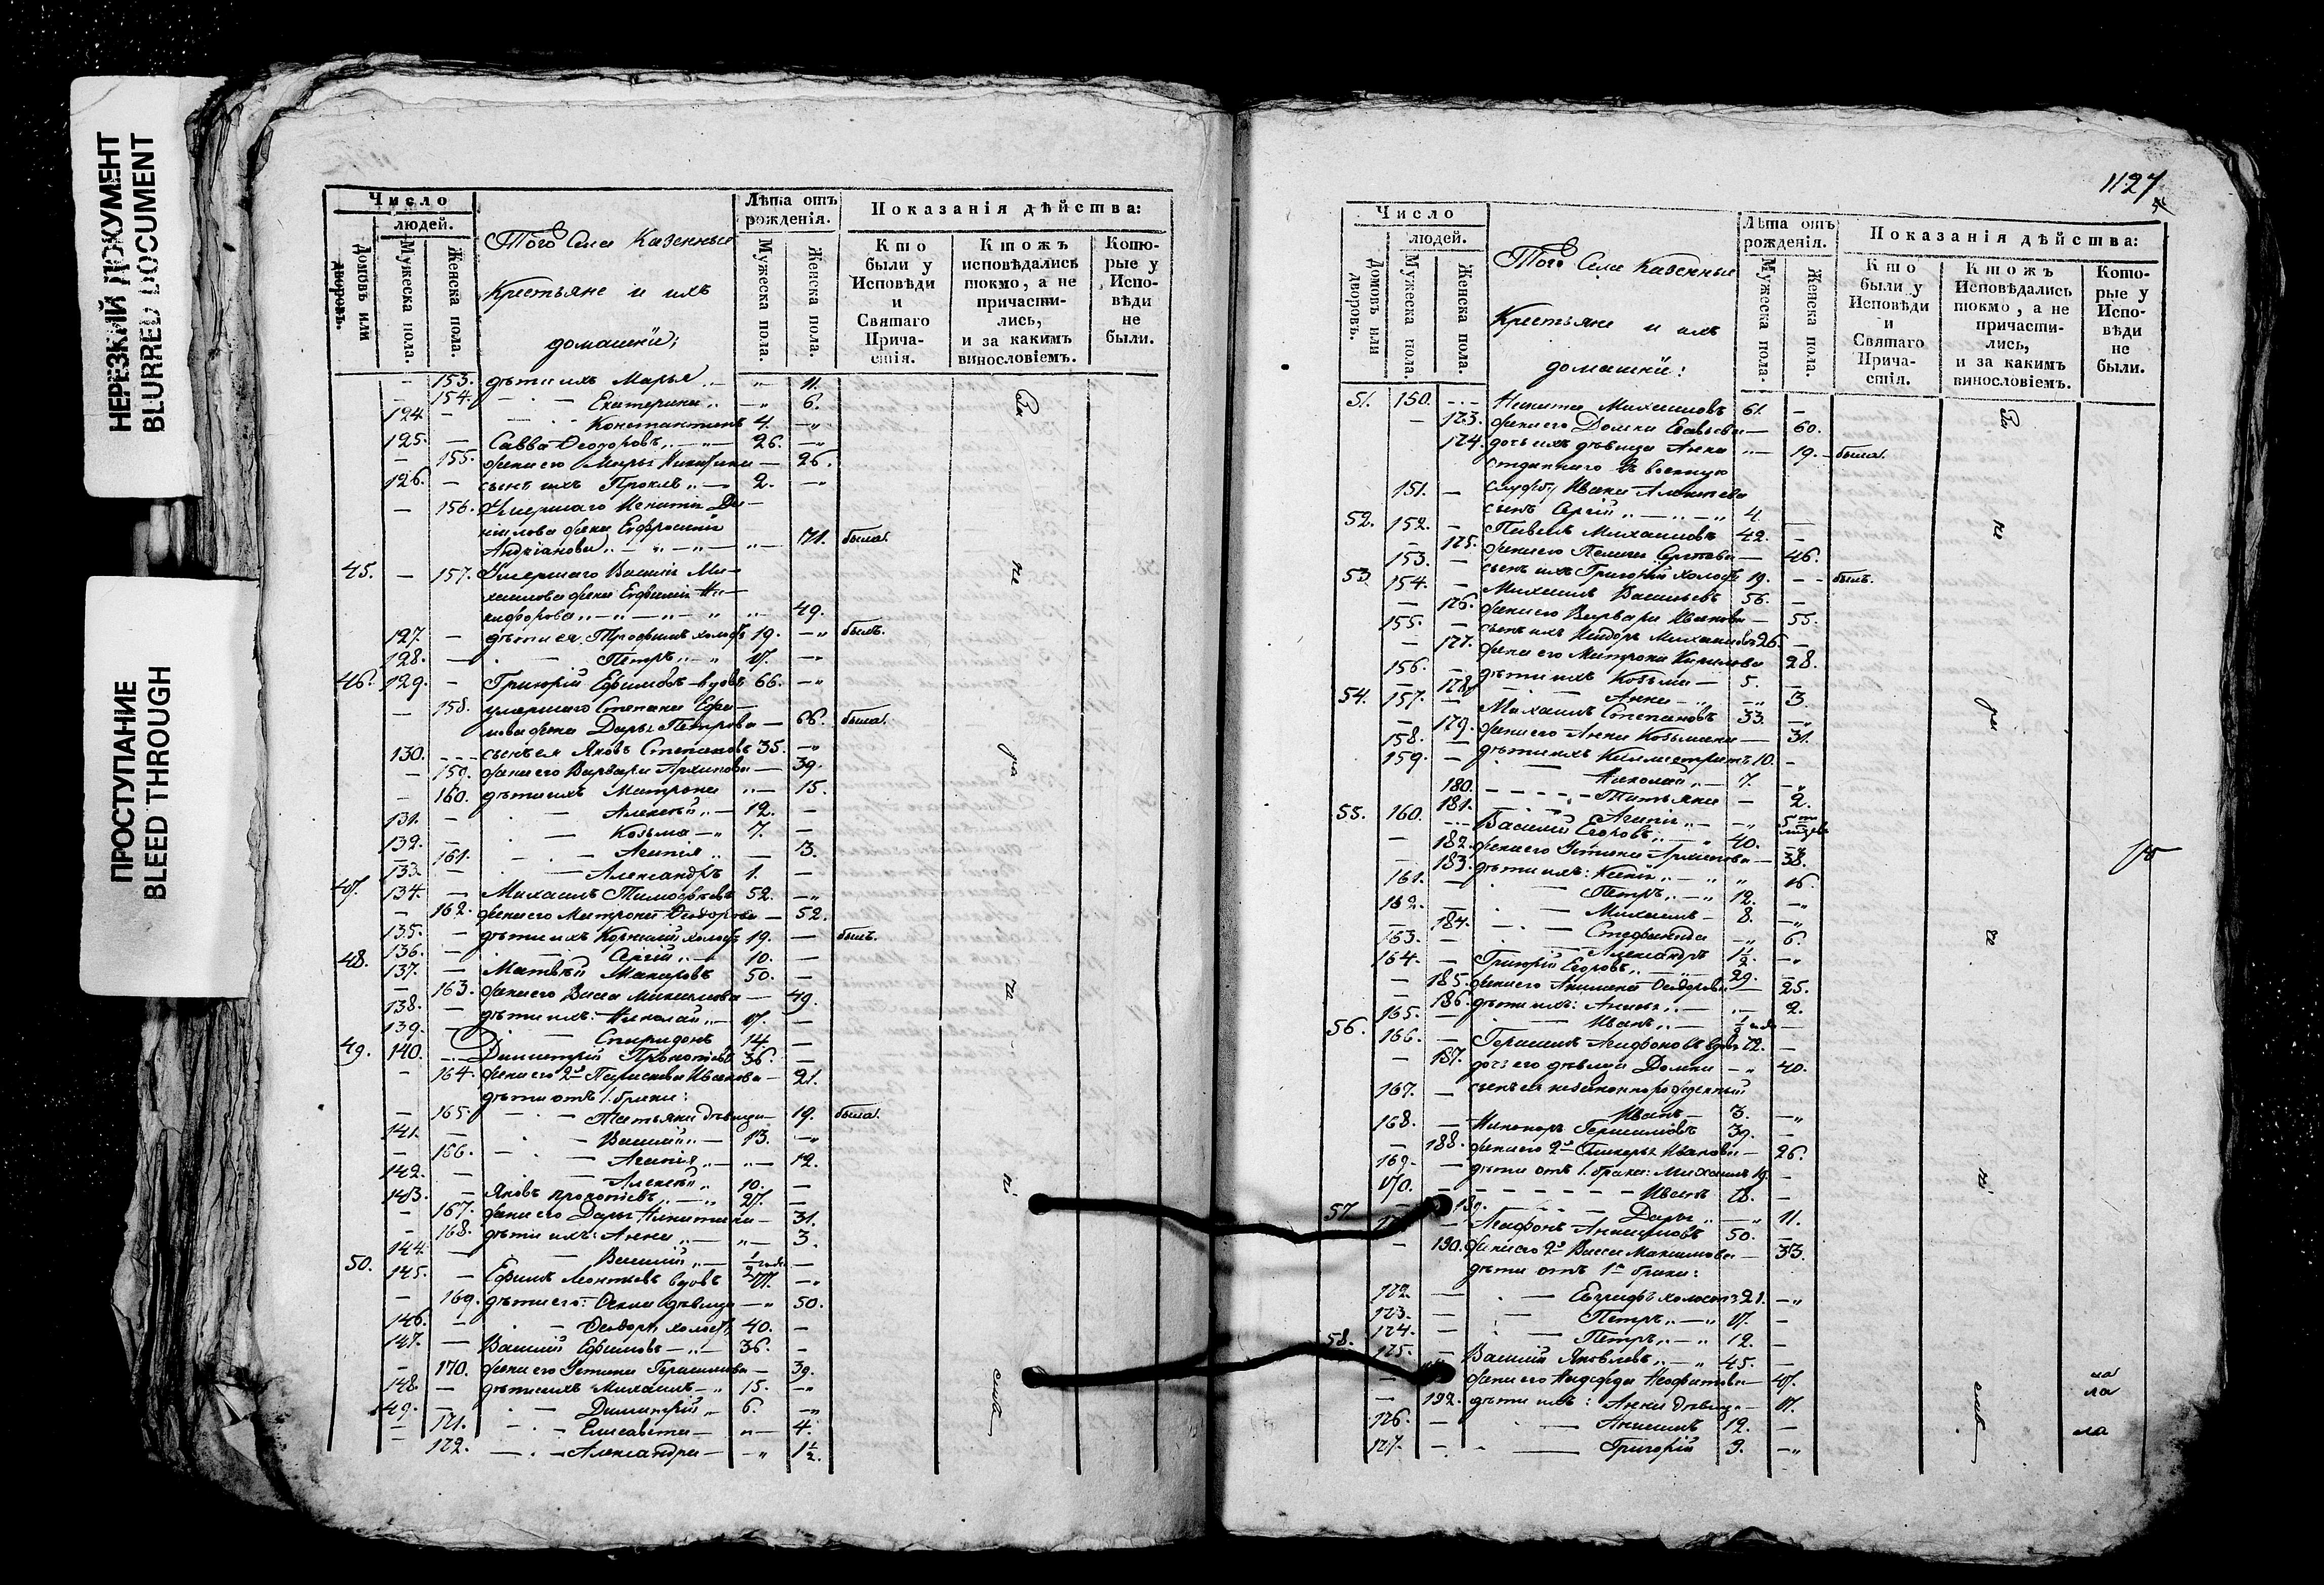 НЕРЕЗКИЙ ДОКУМЕНТ
BLURRED DOCUMENT
ПРОСТУПАНИЕ
BLEED THROUGH
Число
людей.
Домовъ или дворовъ.
Мужеска пола.
Женска пола.
Того Села Казенные
Крестьяне и ихъ
домашніи;
Лѣта отъ рожденія.
Мужеска пола.
Женска пола.
Показанія дѣйства:
Кто были у Исповѣди и Святаго Причастія.
Ктожъ исповѣдались токмо, а не причастились, и за какимъ винословіемъ.
Которые у Исповѣди не были.
— 153. дѣти ихъ Марья „ — „ 11.
— 154. — Екатерина „ — „ 6.
124 — — Константинъ 4. — „
125. — Савва Ѳеодоровъ „ — 26. — „
— 155. жена его Марья Никитина — 26.
126. — сынъ ихъ Проклъ „ — 2. — „
— 156. Умершаго Никиты Да-
ніилова жена Евфросинія
Андріанова „ — „ — „ — 71. была.
45. — 157. Умершаго Василія Ми-
хаилова жена Евфимія Ни-
кифорова „ — „ — „ „ „ 49.
127. — дѣти ея: Трофимъ холостъ 19. — „ былъ.
128. — — Петръ „ — „ 17. — „
46. 129. — Григорій Ефимовъ вдовъ 66. — „
— 158. умершаго Степана Ефи-
мова жена Дарья Петрова — 66. была.
130. — сынъ ея Яковъ Степановъ 35. — „
— 159. жена его Варвара Архипова — 39.
— 160. дѣти ихъ Матрона „ — 15.
131. — — Алексѣй „ — 12. —
132. — — Козьма — „ 7. —
— 161. — Агапія „ — 3.
133. — — Александръ 1. —
47. 134. — Михаилъ Тимоѳеевъ 52. — „
— 162. жена его Матрона Ѳеодорова — 52.
135. — дѣти ихъ Корнилій холостъ 19. — былъ.
136. — — Сергій „ — 10. —
48. 137. — Матвѣй Макаровъ 50. —
— 163. жена его Васса Михаилова — 49.
138. — дѣти ихъ: Николай „ — 17. —
139. — — Спиридонъ 14. —
49. 140. — Димитрій Прокопіевъ 36. —
— 164. жена его 2я Параскева Иванова — 21.
дѣти отъ 1. брака:
— 165. — Татьяна дѣвица — 19. была.
141. — — Василій „ — 13. — „
— 166. — Агапія „ — „ — 12.
142. — — Алексѣй „ 10. —
143. — Яковъ Прокопіевъ „ — „ 27. —
— 167. жена его Дарья Никитина — 31.
— 168. дѣти ихъ: Анна „ — „ — 3.
144. — — Василій „ — ½ года —
50. 145. — Ефимъ Леонтьевъ вдовъ 77. — „
— 169. дѣти его: Ѳекла дѣвица — „ 50.
146. — — Ѳеодоръ холостъ 40. —
147. — Василій Ефимовъ — „ — 36. —
— 170. жена его Устинья Герасимова — 39.
148. — дѣти ихъ Михаилъ — „ 15. — „
149. — — Димитрій „ 6. — „
— 171. — Елисавета — „ — 4.
172. — — Александра — „ 1½.
За
не
ра
че
ні
емъ
1127
Число
людей.
Домовъ или дворовъ.
Мужеска пола.
Женска пола.
Того Села Казенные
Крестьяне и ихъ
домашніи:
Лѣта отъ рожденія.
Мужеска пола.
Женска пола.
Показанія дѣйства:
Кто были у Исповѣди и Святаго Причастія.
Ктожъ Исповѣдались токмо, а не причастились, и за какимъ винословіемъ.
Которые у Исповѣди не были.
51. 150. — Никита Михаиловъ 61. —
— 173. жена его Домна Савельева — 60.
174. дочь ихъ дѣвица Анна „ — 19. — была.
отданнаго въ военную
151. — службу Ивана Алексѣева
сынъ Сергій „ — „ — „ 4. —
52. 152. — Павелъ Михаиловъ 42. —
— 175. жена его Пелагія Сергѣева — 46.
153. — сынъ ихъ Григорій холостъ 19. — былъ.
53. 154. — Михаилъ Васильевъ 56. —
— 176. жена его Варвара Иванова — 55.
155. — сынъ ихъ Исидоръ Михаиловъ 26. —
— 177. жена его Матрона Кирилова 28.
156. — дѣти ихъ Козьма — 5. —
178. — Анна — „ 3.
54. 157. — Михаилъ Степановъ 33. — „
— 179. жена его Анна Козьмина — 31.
158. — дѣти ихъ Каллистратъ 10. —
159. — — Николай „ — 7. — „
180. — Татьяна — 2.
181. — Агапія „ —
55. 160. — Василій Егоровъ „ — „ 40. — „
— 182. жена его Устинья Архипова — 38.
— 183. дѣти ихъ: Ксенія „ — „ „ 16.
161. — — Петръ „ — „ 12. — „
162. — — Михаилъ — 8. — „
— 184. — Стефанида — „ 6.
163. — — Александръ 1½ — „
164. — Григорій Егоровъ „ — „ 29. —
— 185. жена его Акилина Ѳеодорова — 25.
— 186. дѣти ихъ: Агапія „ — „ — 2.
165. — — Иванъ „ — ½ года —
56. 166. — Герасимъ Агафоновъ вдовъ 72. —
— 187. дочь его дѣвица Домна — „ 40.
167. — сынъ ея незаконнорожденный
Иванъ — 3. — „
168. — Никаноръ Герасимовъ 39. —
— 188. жена его 2я Гликерья Иванова — 26.
169. — дѣти отъ 1. брака: Михаилъ 19. —
170. — — Иванъ 18. —
189. — Дарья „ — „ 11.
57. — Агафонъ Анисимовъ 50. —
— 190. жена его 2я Васса Максимова — 33.
дѣти отъ 1го брака:
172. — — холостъ 21. — „
173. — — Петръ „ — „ 17. —
174. — — Петръ „ — „ 12. —
58. 175. — Василій Яковлевъ „ — „ 45. —
— жена его Надежда Неофитова — 47.
— 192. дѣти ихъ: Анна дѣвица — 17.
176. — — Анисимъ 12. —
177. — — Григорій 9. — „
За
не
ра
че
ні
емъ